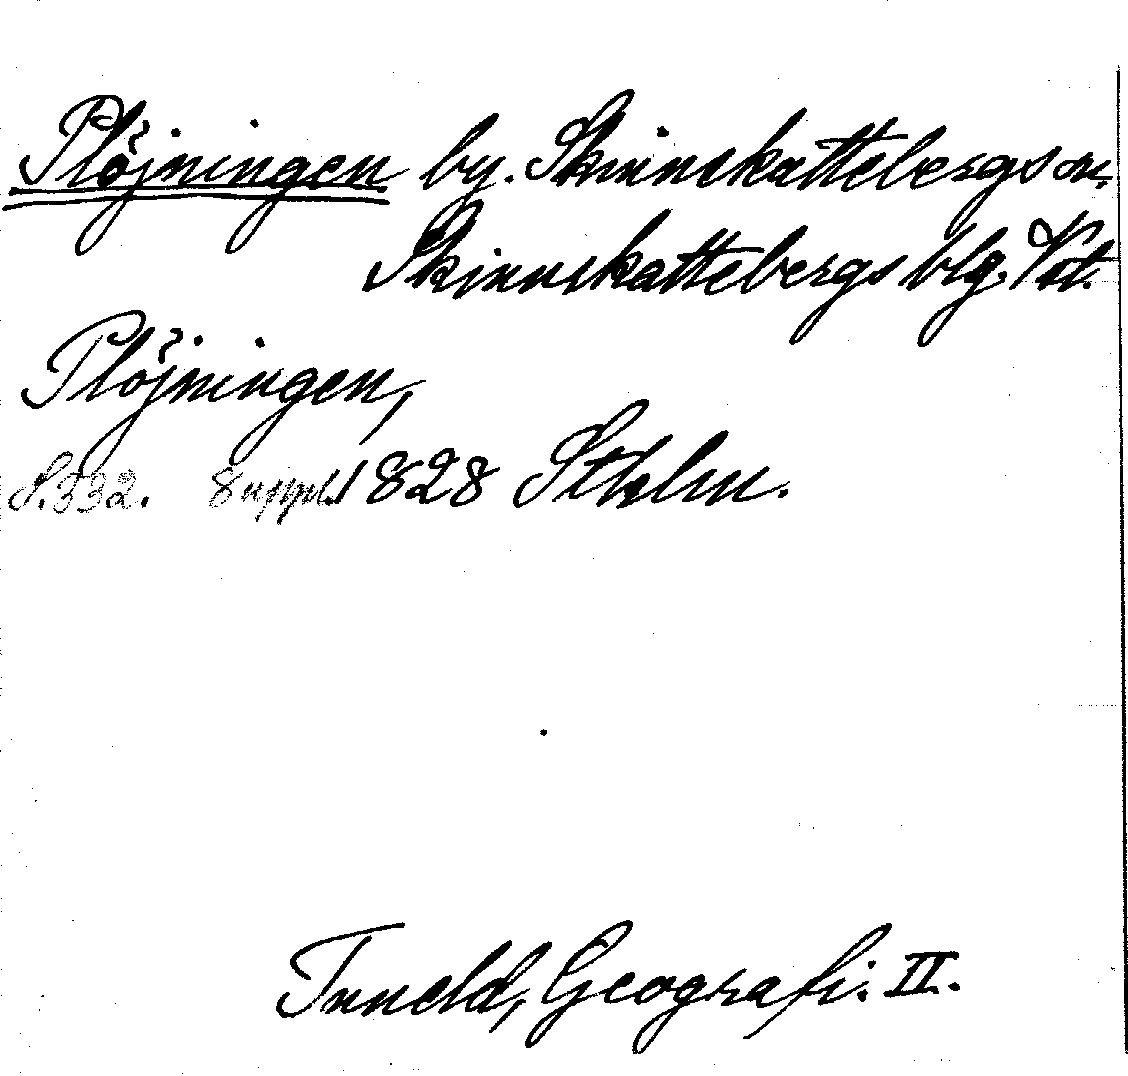 Plöjningen by. Skinnskattebergs sn.
Skinnskattebergs blg. Vst.
Plöjningen,
S. 332. Suppl. 1828 Sthlm.
Tuneld, Geografi. II.